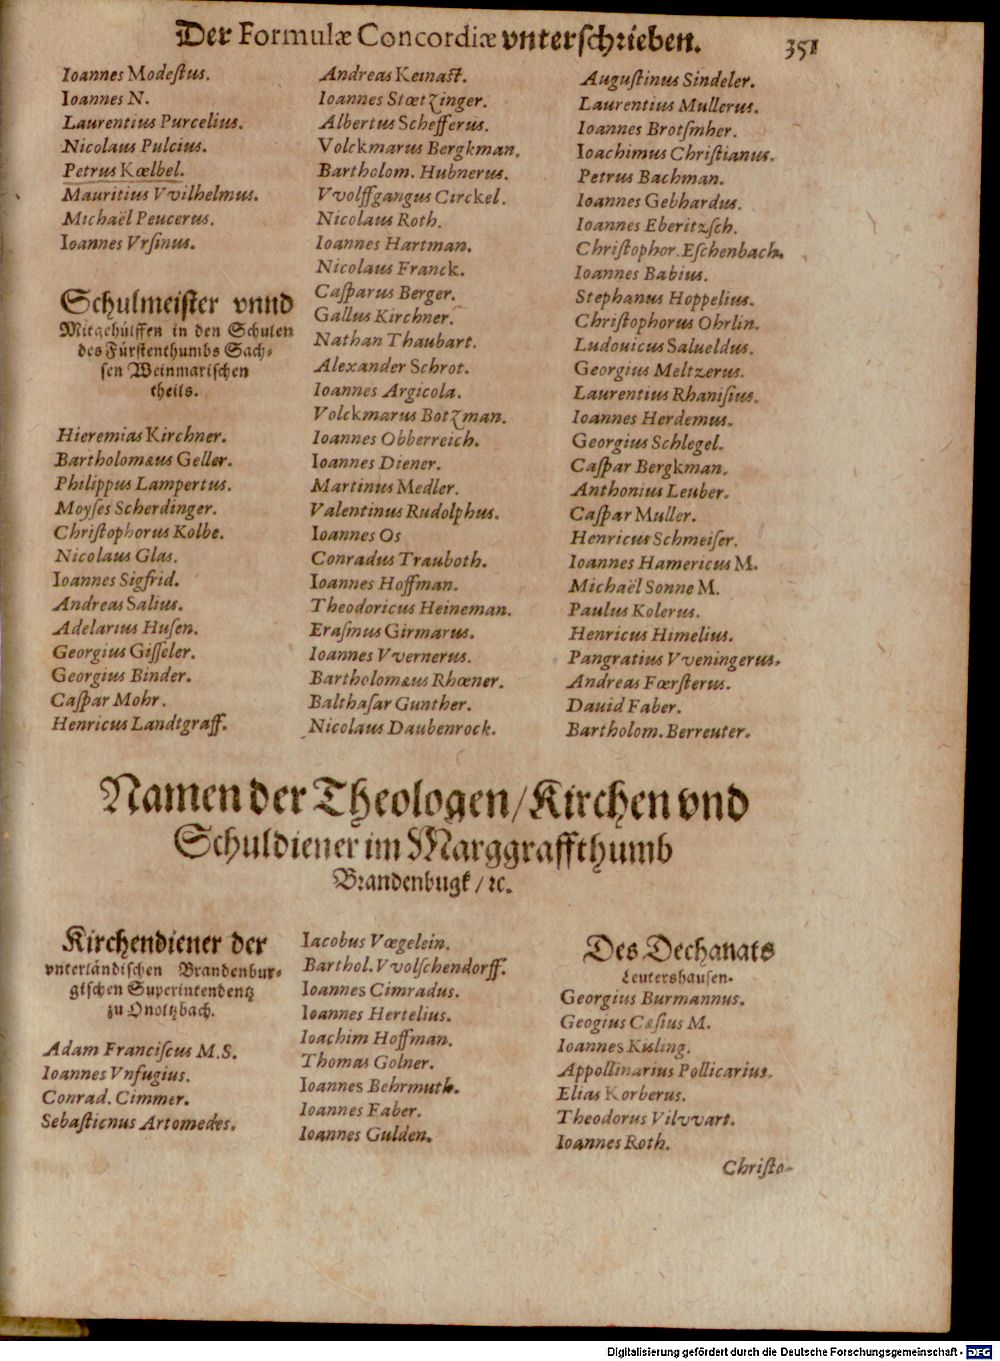 Der Formulæ Concordiæ vnterschrieben. 351
Ioannes Modeſtus.
Ioannes N.
Laurentius Purcelius.
Nicolaus Pulcius.
Petrus Kœlbel.
Mauritius Vvilhelmus.
Michaël Peucerus.
Ioannes Vrſinus.
Schulmeiſter vnnd
Mitgehülffen in den Schulen
des Fürſtenthumbs Sach-
ſen Weinmariſchen
theils.
Hieremias Kirchner.
Bartholomæus Geller.
Philippus Lampertus.
Moyſes Scherdinger.
Chriſtophorus Kolbe.
Nicolaus Glas.
Ioannes Sigfrid.
Andreas Salius.
Adelarius Huſen.
Georgius Giſſeler.
Georgius Binder.
Caſpar Mohr.
Henricus Landtgraff.
Andreas Keinaſt.
Ioannes Stœtzinger.
Albertus Schefferus.
Volckmarus Bergkman.
Bartholom. Hubnerus.
Vvolffgangus Circkel.
Nicolaus Roth.
Ioannes Hartman.
Nicolaus Franck.
Caſparus Berger.
Gallus Kirchner.
Nathan Thaubart.
Alexander Schrot.
Ioannes Argicola.
Volckmarus Botzman.
Ioannes Obberreich.
Ioannes Diener.
Martinus Medler.
Valentinus Rudolphus.
Ioannes Os
Conradus Trauboth.
Ioannes Hoffman.
Theodoricus Heineman.
Eraſmus Girmarus.
Ioannes Vvernerus.
Bartholomæus Rhœner.
Balthaſar Gunther.
Nicolaus Daubenrock.
Auguſtinus Sindeler.
Laurentius Mullerus.
Ioannes Brotſmher.
Ioachimus Chriſtianus.
Petrus Bachman.
Ioannes Gebhardus.
Ioannes Eberitzſch.
Chriſtophor. Eſchenbach.
Ioannes Babius.
Stephanus Hoppelius.
Chriſtophorus Ohrlin.
Ludouicus Salueldus.
Georgius Meltzerus.
Laurentius Rhaniſius.
Ioannes Herdemus.
Georgius Schlegel.
Caſpar Bergkman.
Anthonius Leuber.
Caſpar Muller.
Henricus Schmeiſer.
Ioannes Hamericus M.
Michaël Sonne M.
Paulus Kolerus.
Henricus Himelius.
Pangratius Vveningerus.
Andreas Fœrſterus.
Dauid Faber.
Bartholom. Berreuter.
Namen der Theologen/Kirchen vnd
Schuldiener im Marggraffthumb
Brandenbugk/ ꝛc.
Kirchendiener der
vnterländiſchen Brandenbur-
giſchen Superintendentz
zu Onoltzbach.
Adam Franciſcus M.S.
Ioannes Vnfugius.
Conrad. Cimmer.
Sebaſticnus Artomedes.
Iacobus Vœgelein.
Barthol. Vvolſchendorff.
Ioannes Cimradus.
Ioannes Hertelius.
Ioachim Hoffman.
Thomas Golner.
Ioannes Behrmuth.
Ioannes Faber.
Ioannes Gulden.
Des Dechanats
Leutershauſen.
Georgius Burmannus.
Geogius Cæſius M.
Ioannes Kisling.
Appollinarius Pollicarius.
Elias Korberus.
Theodorus Vilvvart.
Ioannes Roth.
Chriſto-
Digitalisierung gefördert durch die Deutsche Forschungsgemeinschaft - DFG